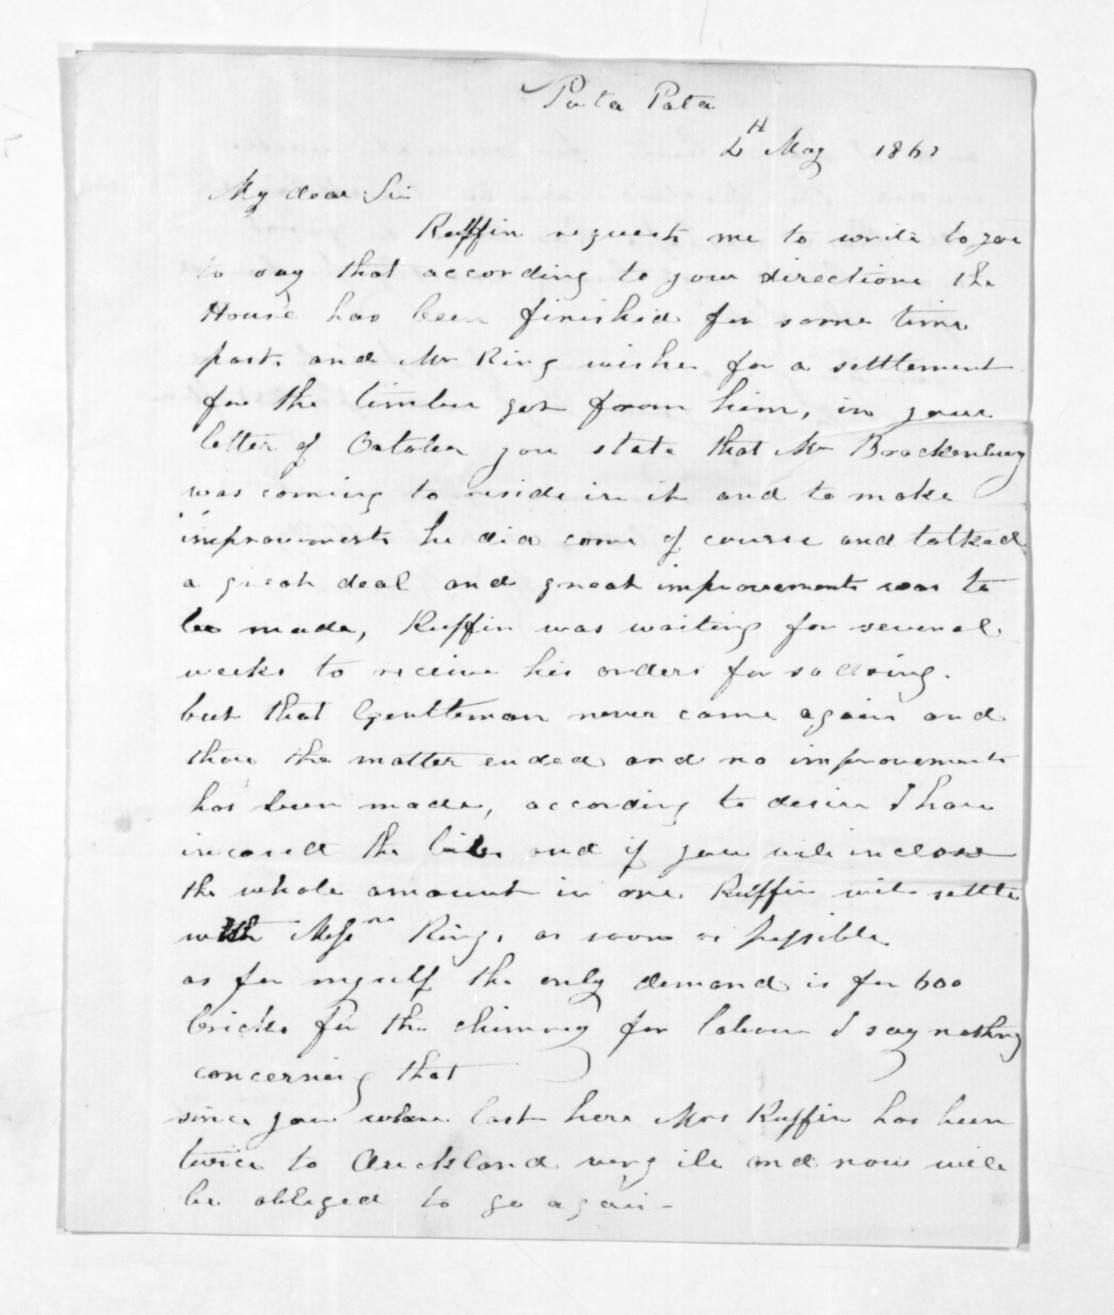 Pata Pata
4th May 1863
My dear Sir
Ruffin requests me to write to you
to say that according to your directions the
House has been finished for some time
past and Mr Ring wishes for a settlement
for the timber got from him, in your
letter of October you state that Mr Brackenbury
was coming to reside in it and to make
improvements he did come of course and talked
a great deal and great improvements was to
be made, Ruffin was waiting for several
weeks to receive his orders for so doing.
but that Gentleman never came again and
there the matter ended and no improvements
has been made, according to desire I have
inclosed the bills and if you will inclose
the whole amount in one Ruffin will settle
with Messrs Ring, as soon as possible
as for myself the only demand is for 600
bricks for the chimney for labour I say nothing
concerning that
since you where last here Mrs Ruffin has been
twice to Auckland very ill and now will
be obliged to go again -